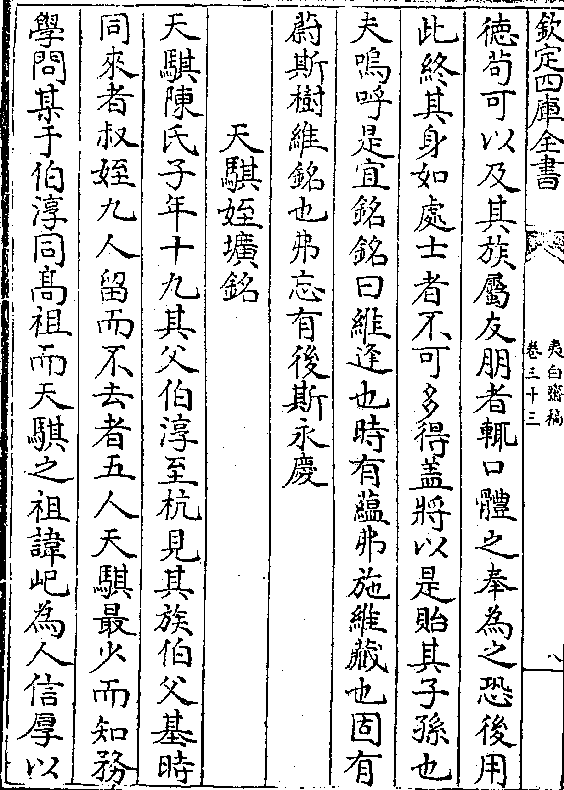 欽定四庫全書
夷白齋稿
卷三十三
八
徳茍可以及其族屬友朋者輒口體之奉為之恐後用
此終其身如處士者不可多得蓋將以是貽其子孫也
夫嗚呼是宜銘銘曰維逢也時有蘊弗施維藏也固有
蔚斯樹維銘也弗忘有後斯永慶
天騏姪壙銘
天騏陳氏子年十九其父伯淳至杭見其族伯父基時
同來者叔姪九人留而不去者五人天騏最少而知務
學問某于伯淳同髙祖而天騏之祖諱屺為人信厚以